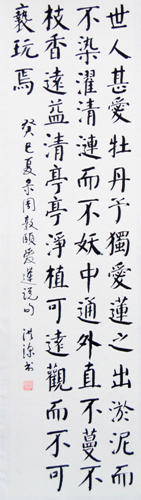 世人甚愛牡丹予獨愛蓮之出淤泥而
不染濯清漣而不妖中通外直不蔓不
枝香遠益清亭亭淨植可遠觀而不可
褻玩焉
癸巳夏录周敦頤愛蓮説句 书